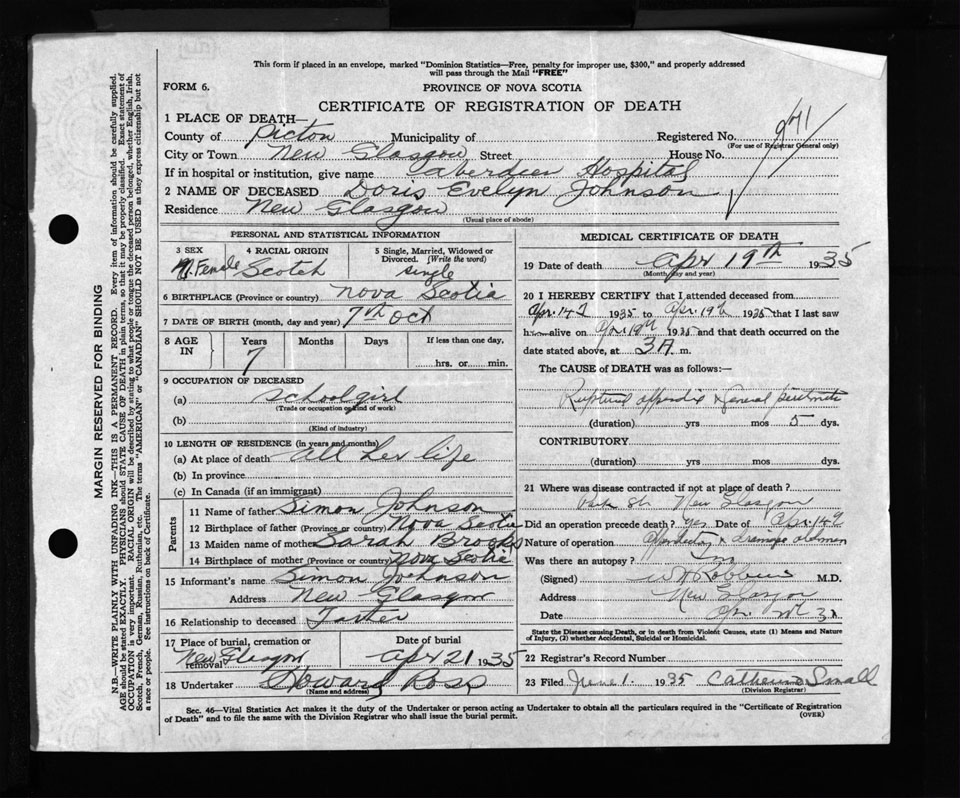 This form if placed in an envelope, marked "Dominion Statistics—Free, penalty for improper use, $300," and properly addressed
will pass through the Mail "FREE"
FORM 6.
PROVINCE OF NOVA SCOTIA
CERTIFICATE OF REGISTRATION OF DEATH
MARGIN RESERVED FOR BINDING
N.B.—WRITE PLAINLY WITH UNFADING INK—THIS IS A PERMANENT RECORD. Every item of information should be carefully supplied.
AGE should be stated EXACTLY. PHYSICIANS should STATE CAUSE OF DEATH in plain terms, so that it may be properly classified. Exact statement of
OCCUPATION is very important. RACIAL ORIGIN will be described by stating to what people or tongue the deceased person belonged, whether English, Irish,
Scotch, French, German, Russian, Ruthenian, etc. The terms "AMERICAN" or "CANADIAN" SHOULD NOT BE USED as they express citizenship but not
a race or people. See instructions on back of Certificate.
1 PLACE OF DEATH—
County of Picton Municipality of Registered No. 971
(For use of Registrar General only)
City or Town New Glasgow Street House No.
If in hospital or institution, give name Aberdeen Hospital
2 NAME OF DECEASED Doris Evelyn Johnson
Residence New Glasgow
(Usual place of abode)
PERSONAL AND STATISTICAL INFORMATION
3 SEX Female
4 RACIAL ORIGIN Scotch
5 Single, Married, Widowed or
Divorced. (Write the word)
single
6 BIRTHPLACE (Province or country) Nova Scotia
7 DATE OF BIRTH (month, day and year) 7th Oct
8 AGE IN Years Months Days If less than one day,
7 hrs. or min.
9 OCCUPATION OF DECEASED
(a) schoolgirl
(Trade or occupation or kind of work)
(b)
(Kind of industry)
10 LENGTH OF RESIDENCE (in years and months)
(a) At place of death all her life
(b) In province
(c) In Canada (if an immigrant)
Parents
11 Name of father Simon Johnson
12 Birthplace of father (Province or country) Nova Scotia
13 Maiden name of mother Sarah Brooks
14 Birthplace of mother (Province or country) Nova Scotia
15 Informant's name Simon Johnson
Address New Glasgow
16 Relationship to deceased Father
17 Place of burial, cremation or removal New Glasgow
Date of burial
Apr 21 1935
18 Undertaker Howard Ross
(Name and address)
MEDICAL CERTIFICATE OF DEATH
19 Date of death Apr 19th 1935
(Month, day and year)
20 I HEREBY CERTIFY that I attended deceased from
Apr. 14 1935 to Apr. 19th 1935 that I last saw
h alive on Apr 19th 1935 and that death occurred on the
date stated above, at 3 A. m.
The CAUSE of DEATH was as follows:
Ruptured appendix & general peritonitis
(duration) yrs mos 5 dys.
CONTRIBUTORY
(duration) yrs. mos. dys.
21 Where was disease contracted if not at place of death?
New Glasgow
Did an operation precede death? Yes Date of Apr. 14
Nature of operation & drainage abdomen
Was there an autopsy?
(Signed) M.D.
Address New Glasgow
Date
State the Disease causing Death, or in death from Violent Causes, state (1) Means and Nature
of Injury, (2) whether Accidental, Suicidal or Homicidal.
22 Registrar's Record Number
23 Filed June 1. 1935 Catherine Small
(Division Registrar)
Sec. 46—Vital Statistics Act makes it the duty of the Undertaker or person acting as Undertaker to obtain all the particulars required in the "Certificate of Registration
of Death" and to file the same with the Division Registrar who shall issue the burial permit.
(OVER)